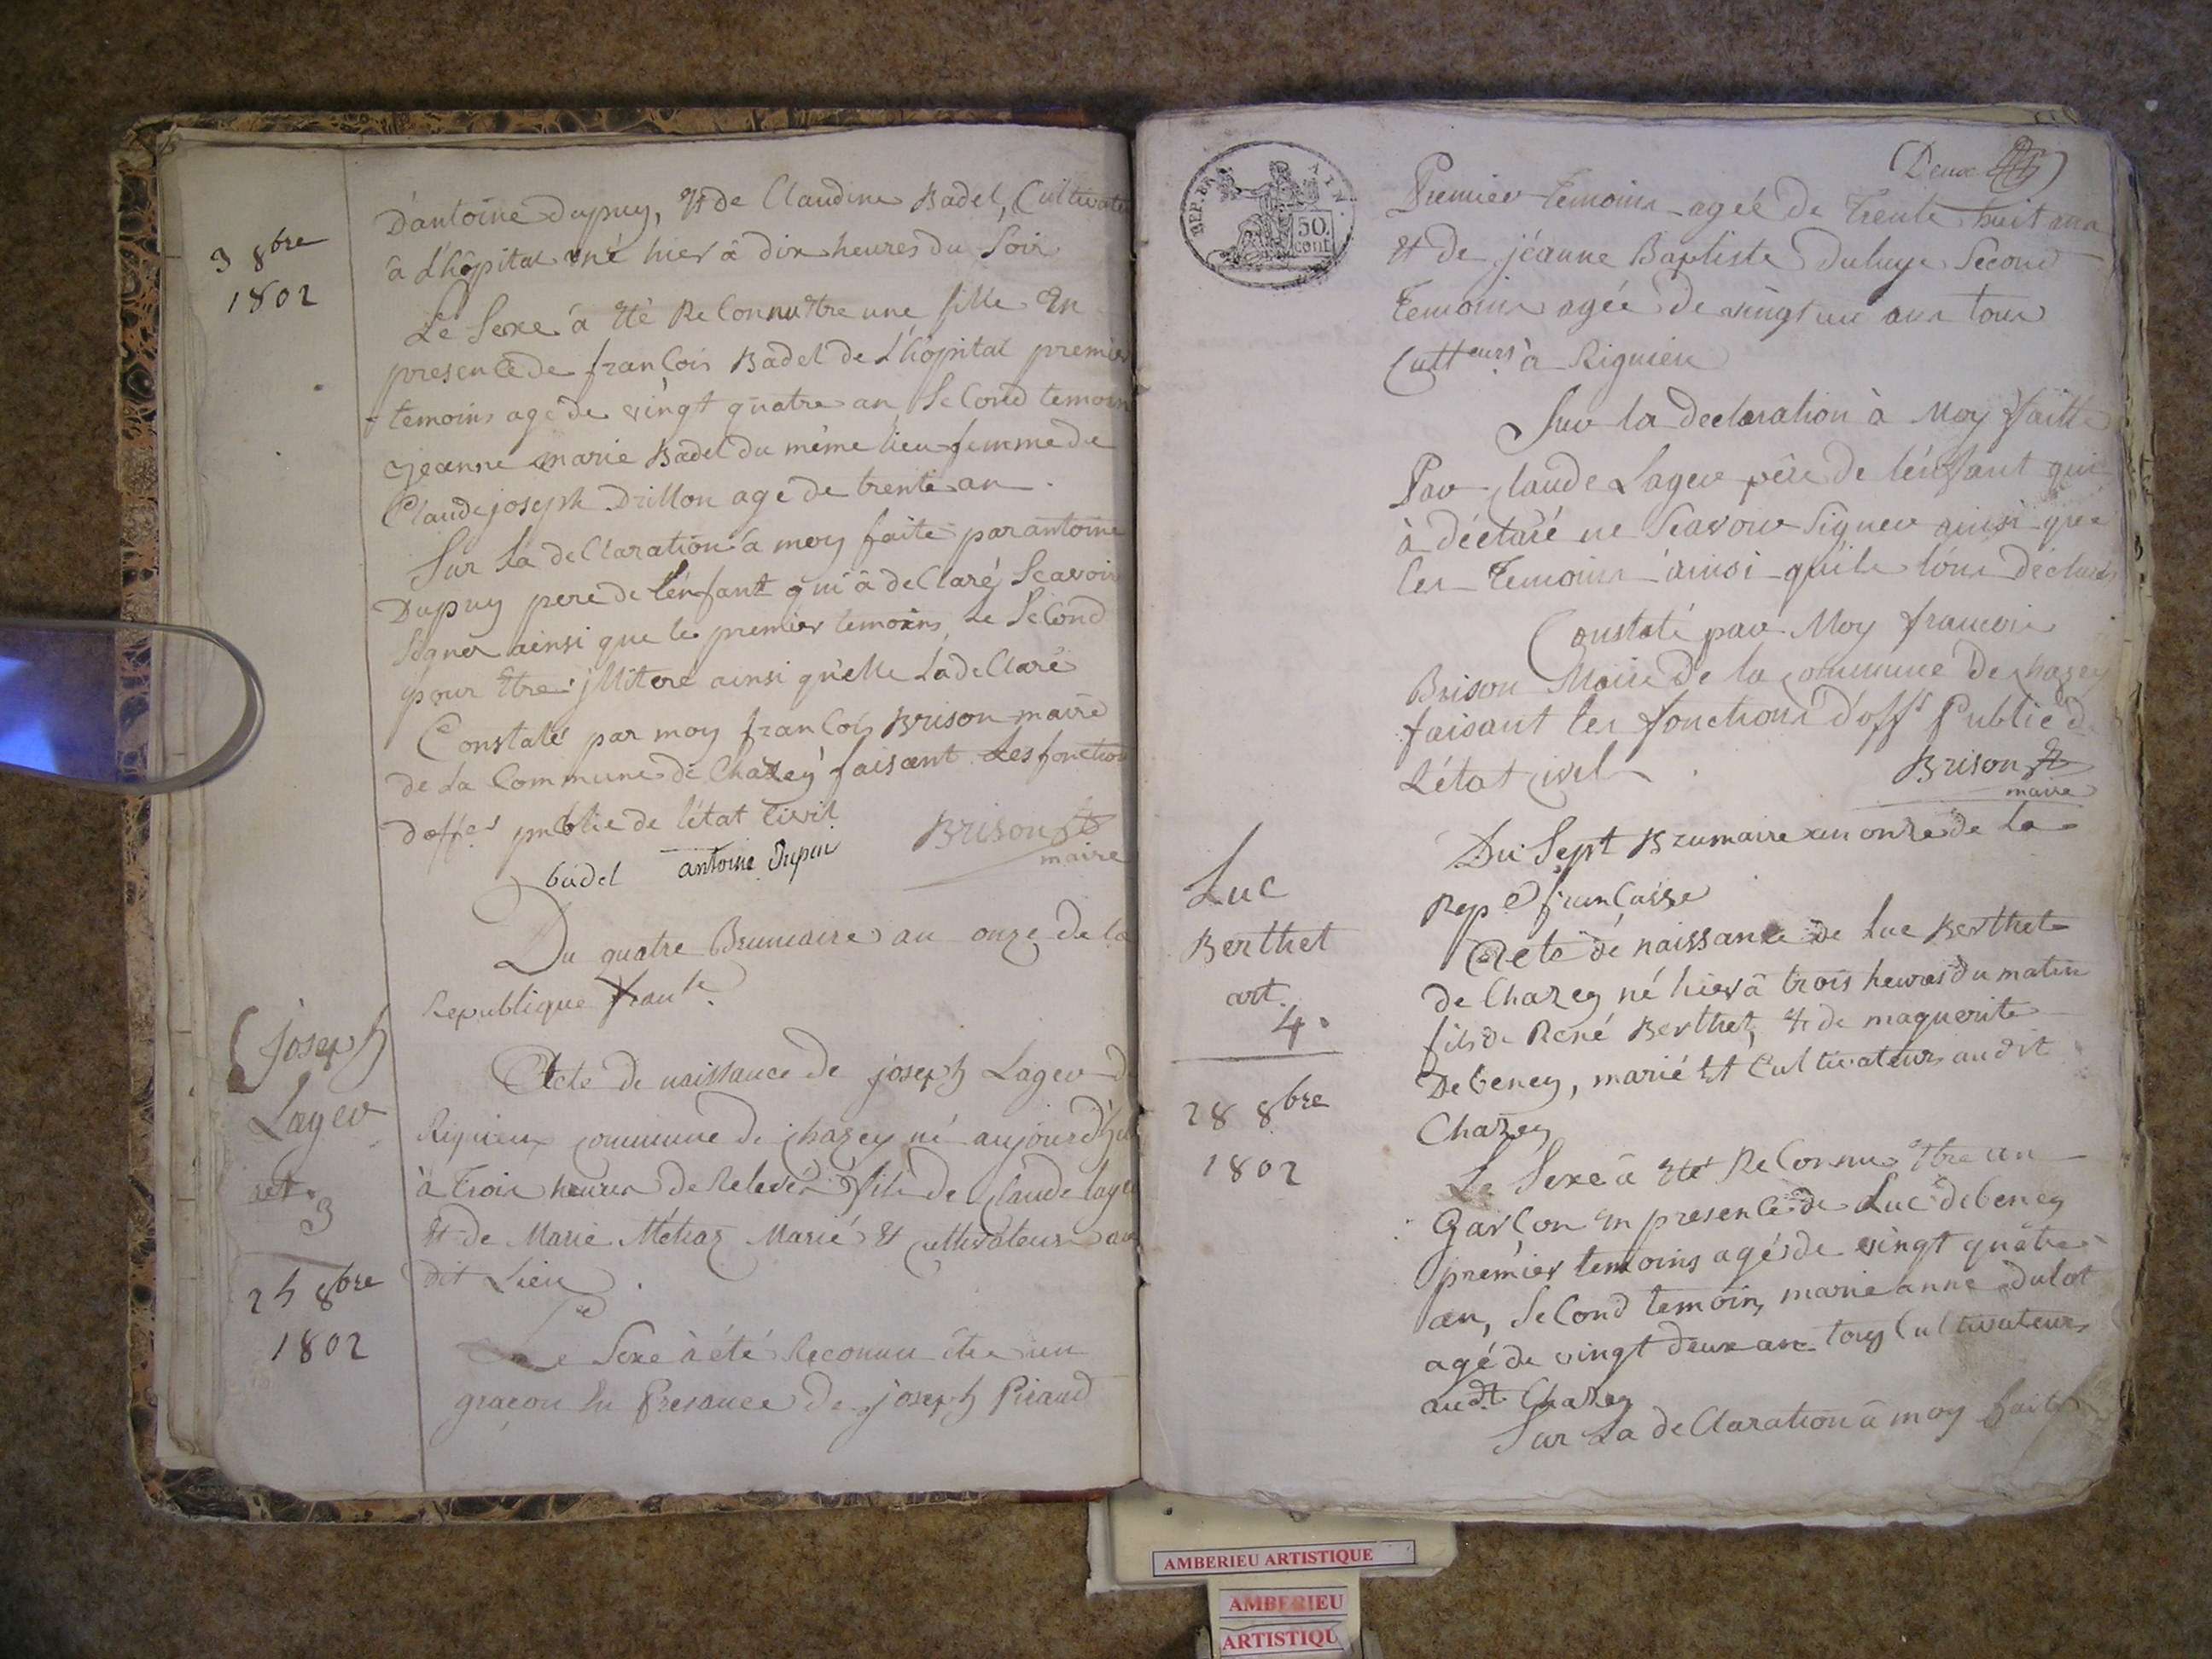 3 8bre
1802
D'antoine Dupuy, et de Claudine Badel, Cultivate
à L'hôpital né hier à dix heures du Soir
Le Sexe à été ReConnu être une fille En
presenCe de franÇois Badel de L'hôpital premier
temoins agé de vingt quatre an SeCond temoin
jeanne marie Badel du même lieu femme de
Claude joseph Drillon agé de trente an
Sur La deClaration à moy faite par antoine
Dupuy pere de L'énfant qui à deClaré Scavoir
Signer ainsi que le premier temoins Le SeCond
pour être illitere ainsi qu'elle La deClaré
Constaté par moy franÇois Brison maire
de La Commune de Chazey faisant Les fonction
d'offer publie de l'état Civil
Brison
maire
badel antoine Dupui
Du quatre Brumaire an onze de la
Republique
Joseph
Lager
art.
3
25 8bre
1802
Acte de naissance de joseph Lager d
Rignieux commune de chazey né aujourd'hui
à Trois heures de Relevée fils de Claude lager
et de Marie Métraz Marié et cultivateurs au
dit Lieu
Le Sexe à été Reconnu être un
graçon En Presance de joseph Piraud
Deux
REP. FRA
AIN.
50.
cent
Premier temoins agée de trente huit ans
et de jéanne Baptiste Second
temoins agée de vingt un ans tous
Culteurs à Rignieu
Sur la declaration à Moy faitte
Par Claude Lager père de lénfant qui
à déclaré ne Scavoir Signer ainsi que
les temoins ainsi quils lons déclarés
Constaté par Moy francois
Brison Maire de la commune de chazey
faisant les fonctions d'offr Public d
L'état Civil
Brison
maire
Luc
Berthet
art.
4.
28 8bre
1802
Du Sept Brumaire an onze de La
Repe franÇaise
Acte de naissance de Luc Berthet
de Chazey né hier à trois heures du matin
fils de René Berthet, et de maguerite
Debeney, marié et Cultivateurs audit
Chazey
Le Sexe à été ReConnu être un
GarÇon en presenCe de Luc debeney
premier temoins agés de vingt quatre
an, SeCond temoin, marie anne dulat
agé de vingt deux an tous Cultivateurs
audt. Chazey
Sur La deClaration à moy faite
AMBERIEU ARTISTIQUE
AMBERIEU
ARTISTIQU